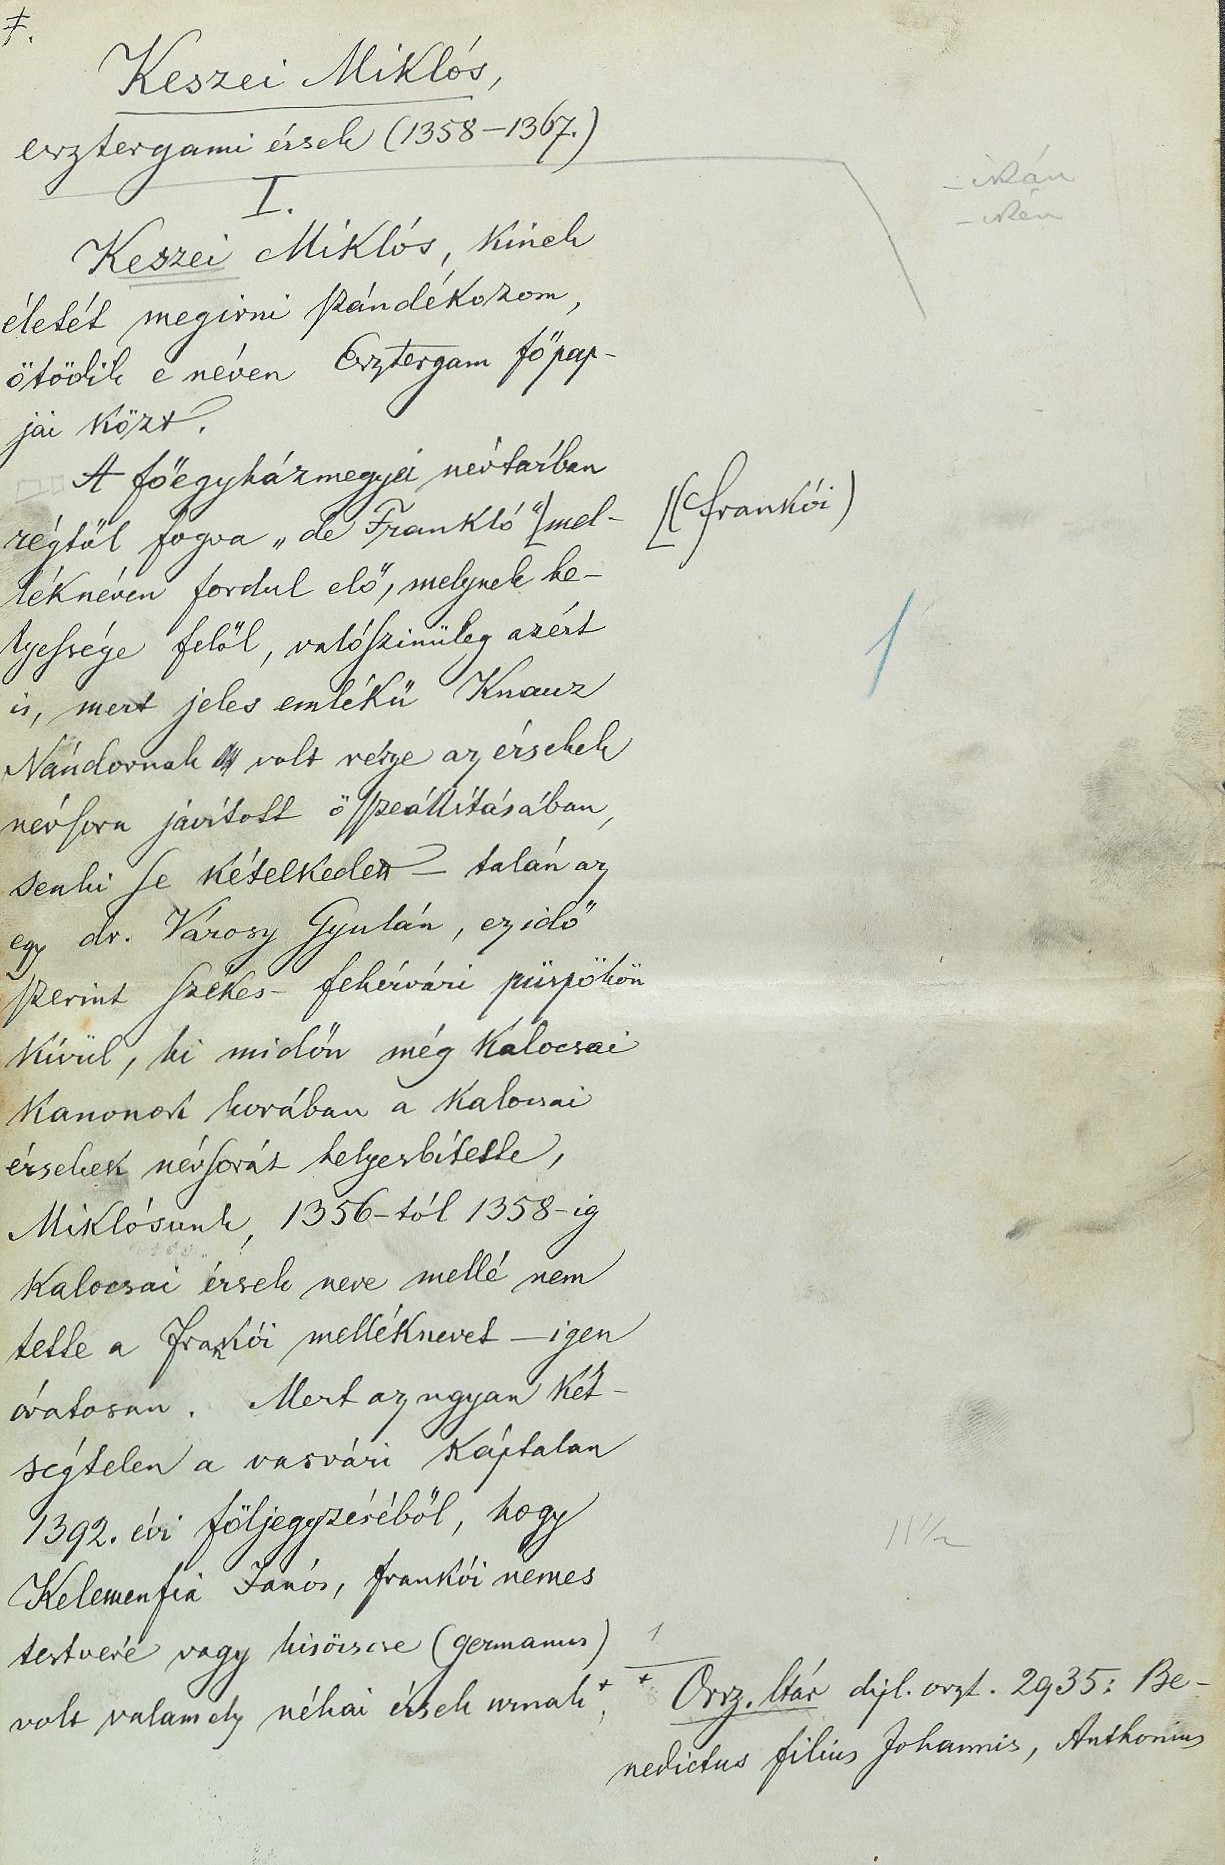 Keszei Miklós,
esztergami érsek (1358–1367.)
I.
Keszei Miklós, kinek
életét megirni szándékozom,
ötödik e néven Esztergam főpap-
jai közt.
A főegyházmegyei névtárban
régtől fogva „de Frankló" [mel-
léknéven fordul elő, melynek he-
lyessége felől, valószinüleg azért
is, mert jeles emlékü Knauz
Nándornak volt része az érsekek
névsora javított összeállításában,
senki se kételkedett – talán az
egy dr. Városy Gyulán, ez idő
szerint székes-fehérvári püspökön
kívül, ki midőn még kalocsai
kanonok korában a kalocsai
érsekek névsorát helyesbítette,
Miklósunk, 1356-tól 1358-ig
kalocsai érsek neve mellé nem
tette a frankói melléknevet – igen
óvatosan. Mert az ugyan két-
ségtelen a vasvári káptalan
1392. évi följegyzéséből, hogy
Kelemenfia János, frankói nemes
testvere vagy kisöcscse (germanus)
volt valamely néhai érsek urnak+,
– ikán
– ikén
[(frankói)
1
11 1/2
1
+ Orsz. ltár dipl. oszt. 2935: Be-
nedictus filius Johannis, Anthonius